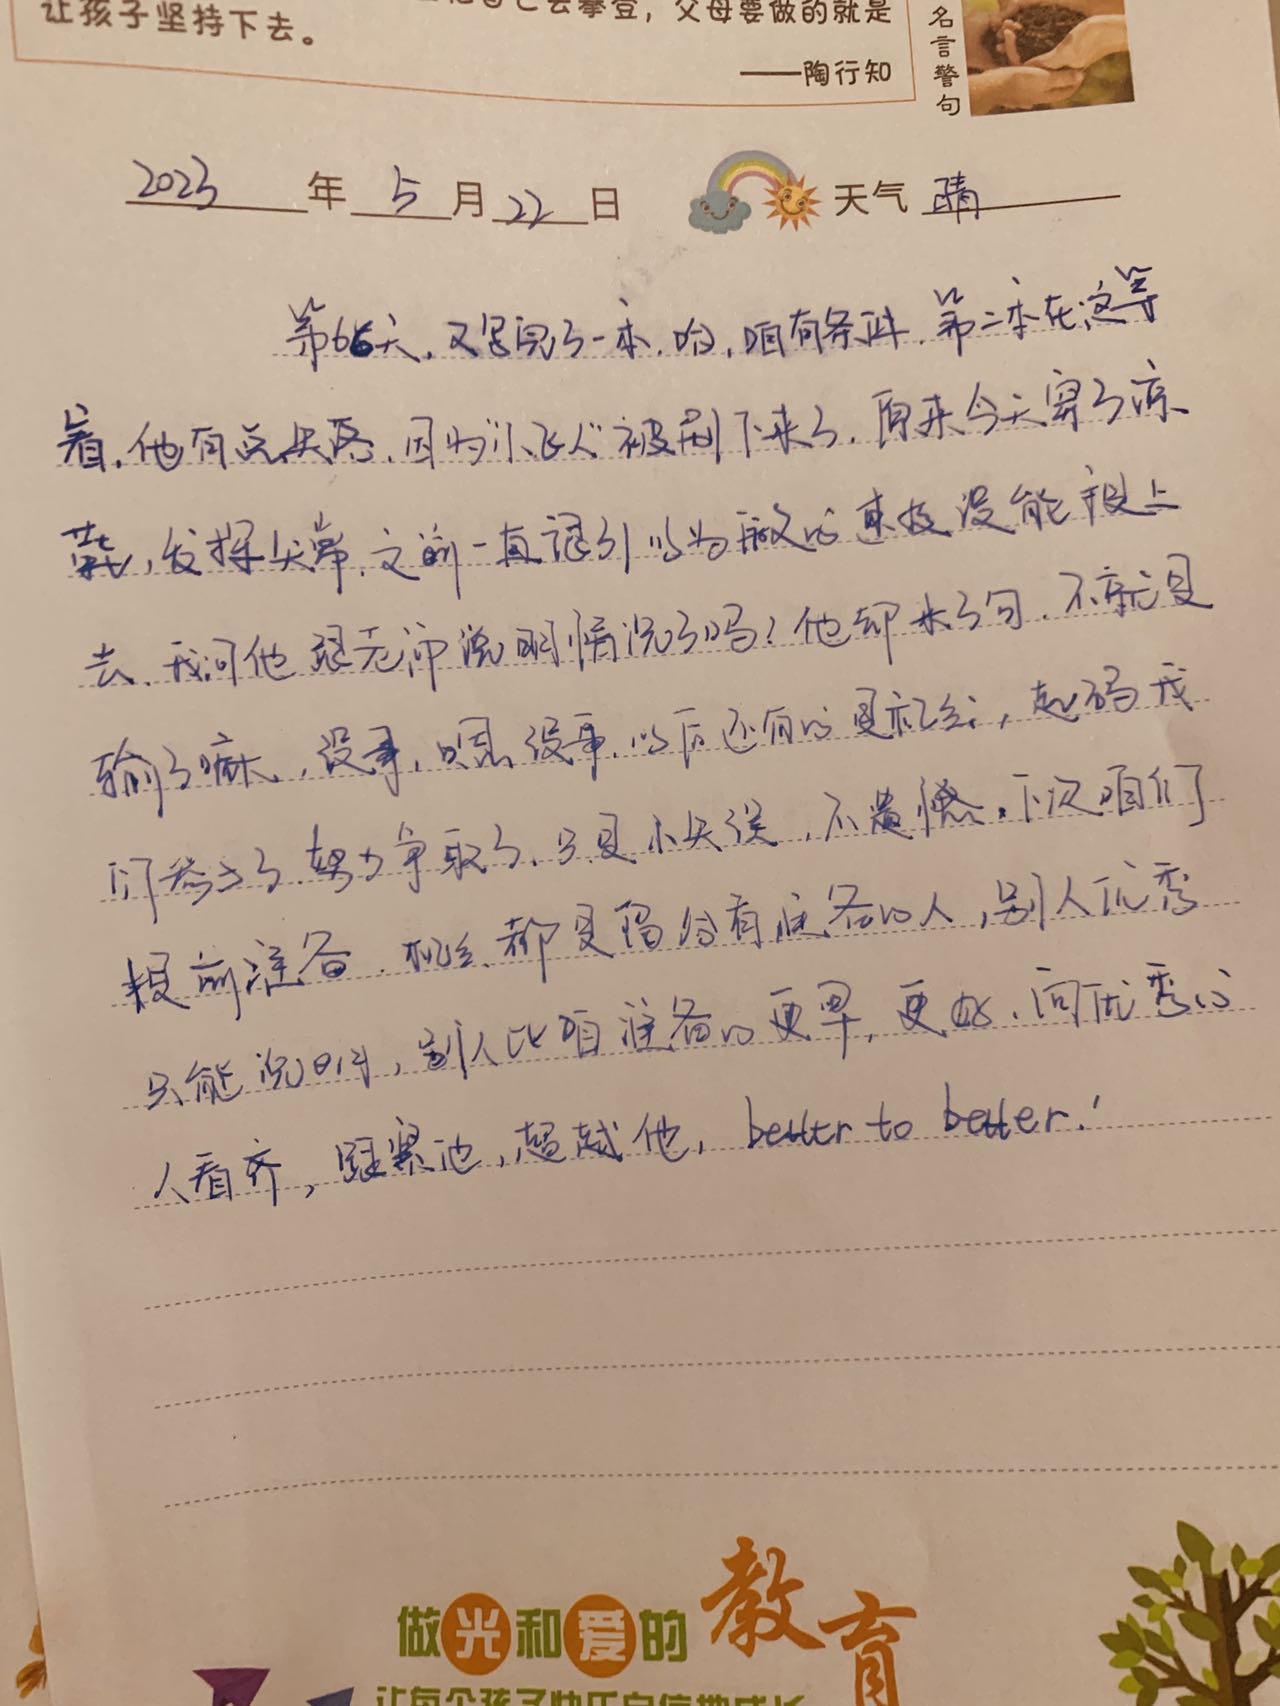 自己去攀登，父母要做的就是
让孩子坚持下去。
——陶行知
名言警句
2023年5月22日 天气 晴
第66天，又写完了一本，哈，咱有条件，第二本在这等
着，他有点失落，因为“小飞人”被刷下来了，原来今天穿了凉
鞋，发挥失常，之前一直引以为傲的速度没能提上
去，我问他跟老师说明情况了吗？他却来了句，不就是
输了嘛，没事，嗯，没事，以后还有的是机会，起码我
们参与了，努力争取了，只是小失误，不遗憾。下次咱们
提前准备，机会都是留给有准备的人，别人优秀
只能说明，别人比咱准备的更早，更好，向优秀的
人看齐，跟紧他，超越他，better to better！
做光和爱的教育
让每个孩子快乐自信地成长